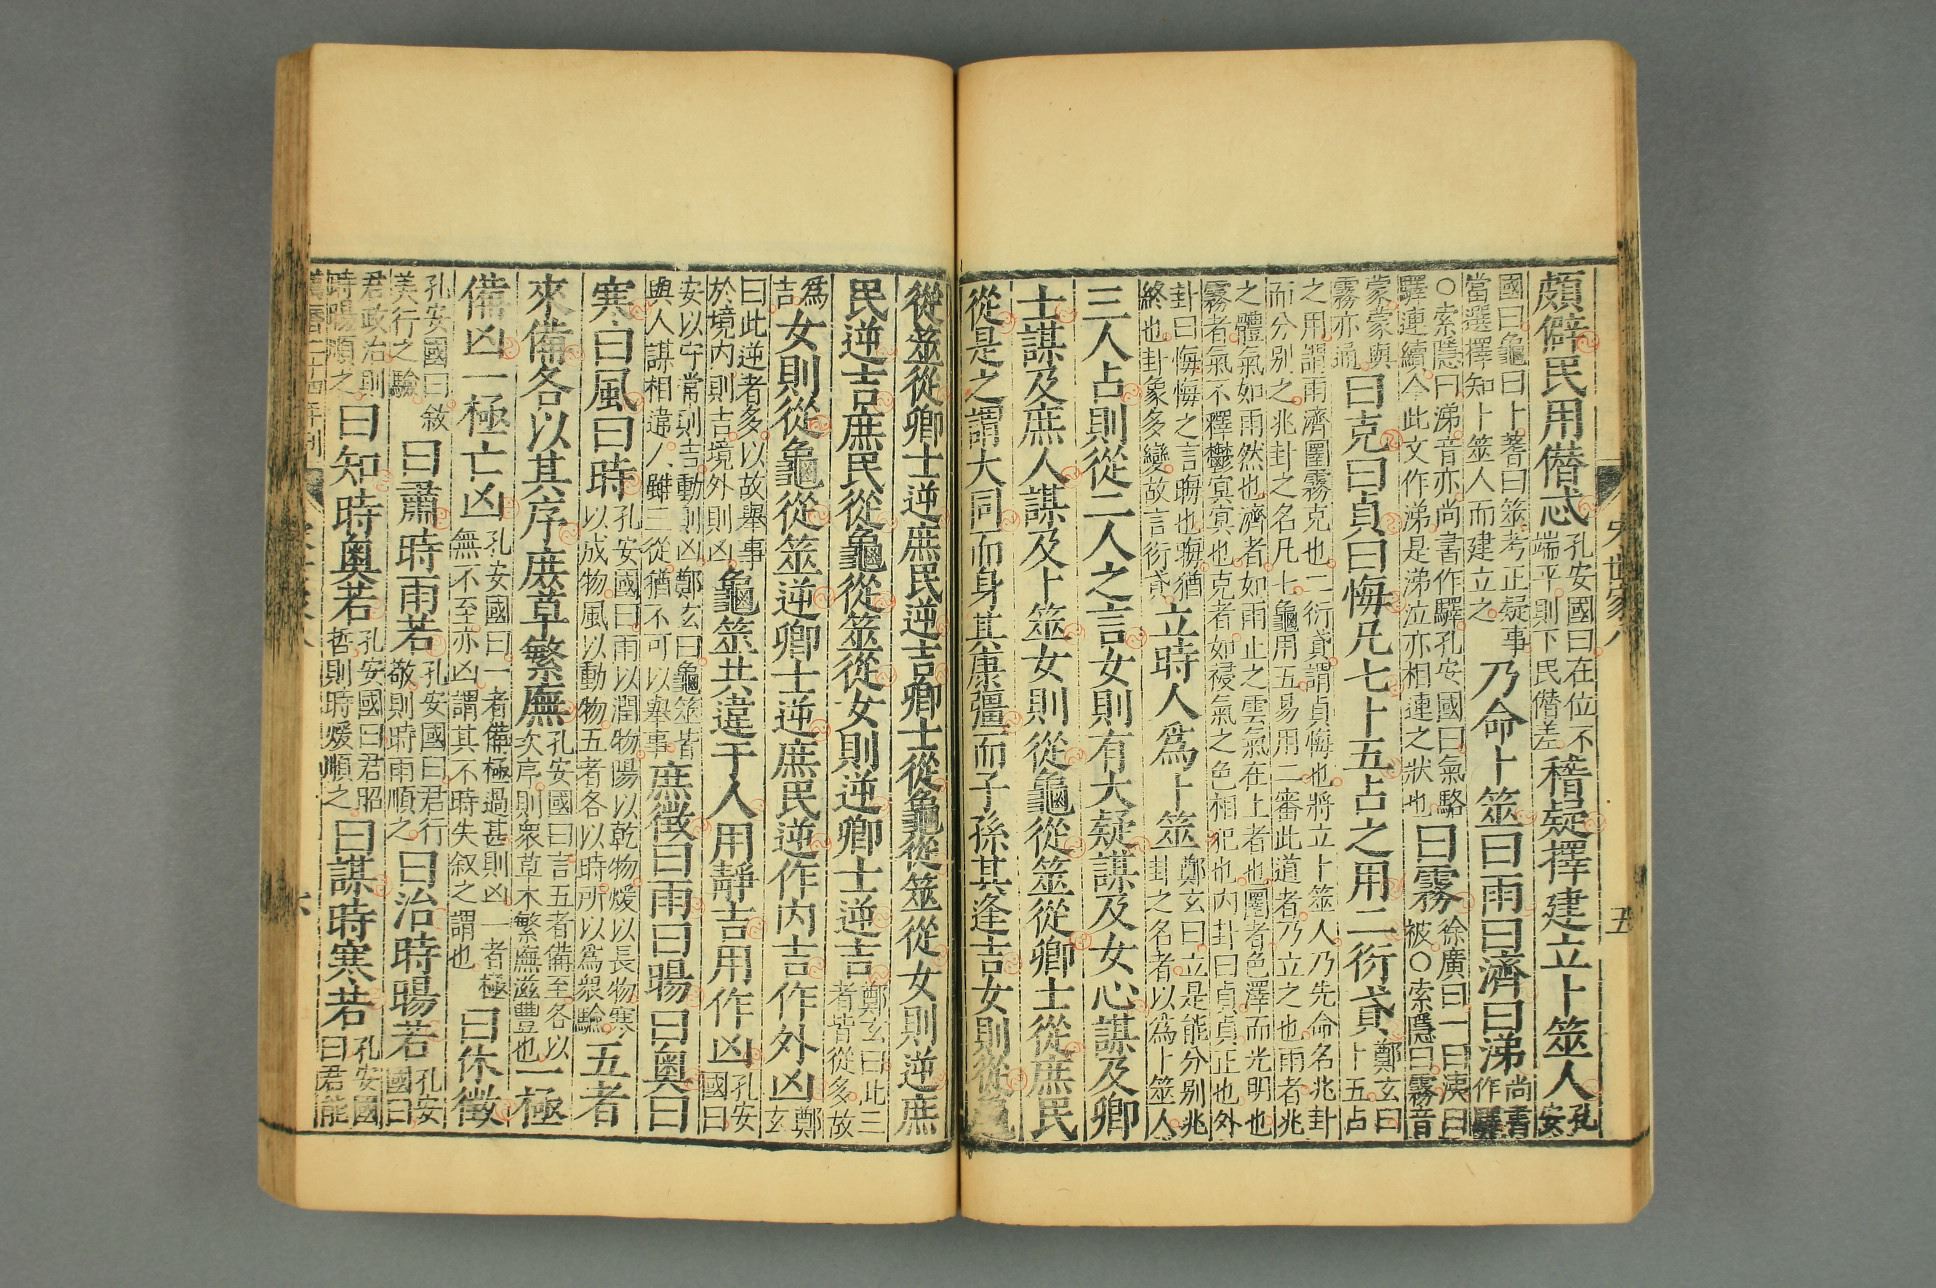 宋世家八 五
頗僻民用僭忒孔安國曰在位不端平則下民僭差稽疑擇建立卜筮人孔安
國曰龜曰卜蓍曰筮考正疑事當選擇知卜筮人而建立之乃命卜筮曰雨曰濟曰涕尚書作驛
○索隱曰涕音亦尚書作驛孔安國曰氣駱驛連續今此文作涕是涕泣亦相連之狀也曰霧徐廣曰一曰洟曰被○索隱曰霧音
蒙蒙與霧亦通曰克曰貞曰悔凡七卜五占之用二衍貣鄭玄曰卜五占
之用謂雨濟圛霧克也二衍貣謂貞悔也將立卜筮人乃先命名兆卦而分别之兆卦之名凡七龜用五易用二審此道者乃立之也雨者兆
之體氣如雨然也濟者如雨止之雲氣在上者也圛者色澤而光明也霧者氣不釋鬱冥冥也克者如祲氣之色相犯也内卦曰貞貞正也外
卦曰悔悔之言晦也晦猶終也卦象多變故言衍貣立時人爲卜筮鄭玄曰立是能分别兆卦之名者以為卜筮人
三人占則從二人之言女則有大疑謀及女心謀及卿
士謀及庶人謀及卜筮女則從龜從筮從卿士從庶民
從是之謂大同而身其康彊而子孫其逢吉女則從龜
從筮從卿士逆庶民逆吉卿士從龜從筮從女則逆庶
民逆吉庶民從龜從筮從女則逆卿士逆吉鄭玄曰此三者皆從多故
爲吉女則從龜從筮逆卿士逆庶民逆作内吉作外凶鄭玄
曰此逆者多以故舉事於境内則吉境外則凶龜筮共違于人用靜吉用作凶孔安國曰
安以守常則吉動則凶鄭玄曰龜筮皆與人謀相違人雖三從猶不可以舉事庶徵曰雨曰暘曰奥曰
寒曰風曰時孔安國曰雨以潤物陽以乾物煖以長物寒以成物風以動物五者各以時所以爲衆驗五者
來備各以其序庶草繁廡孔安國曰言五者備至各以次序則衆草木繁廡滋豐也一極
備凶一極亡凶孔安國曰一者備極過甚則凶一者極無不至亦凶謂其不時失叙之謂也曰休徵
孔安國曰敘美行之驗曰肅時雨若孔安國曰君行敬則時雨順之曰治時暘若孔安國曰
君政治則時陽順之曰知時奥若孔安國曰君昭哲則時煖順之曰謀時寒若孔安國曰君能
萬曆二十四年刊 六